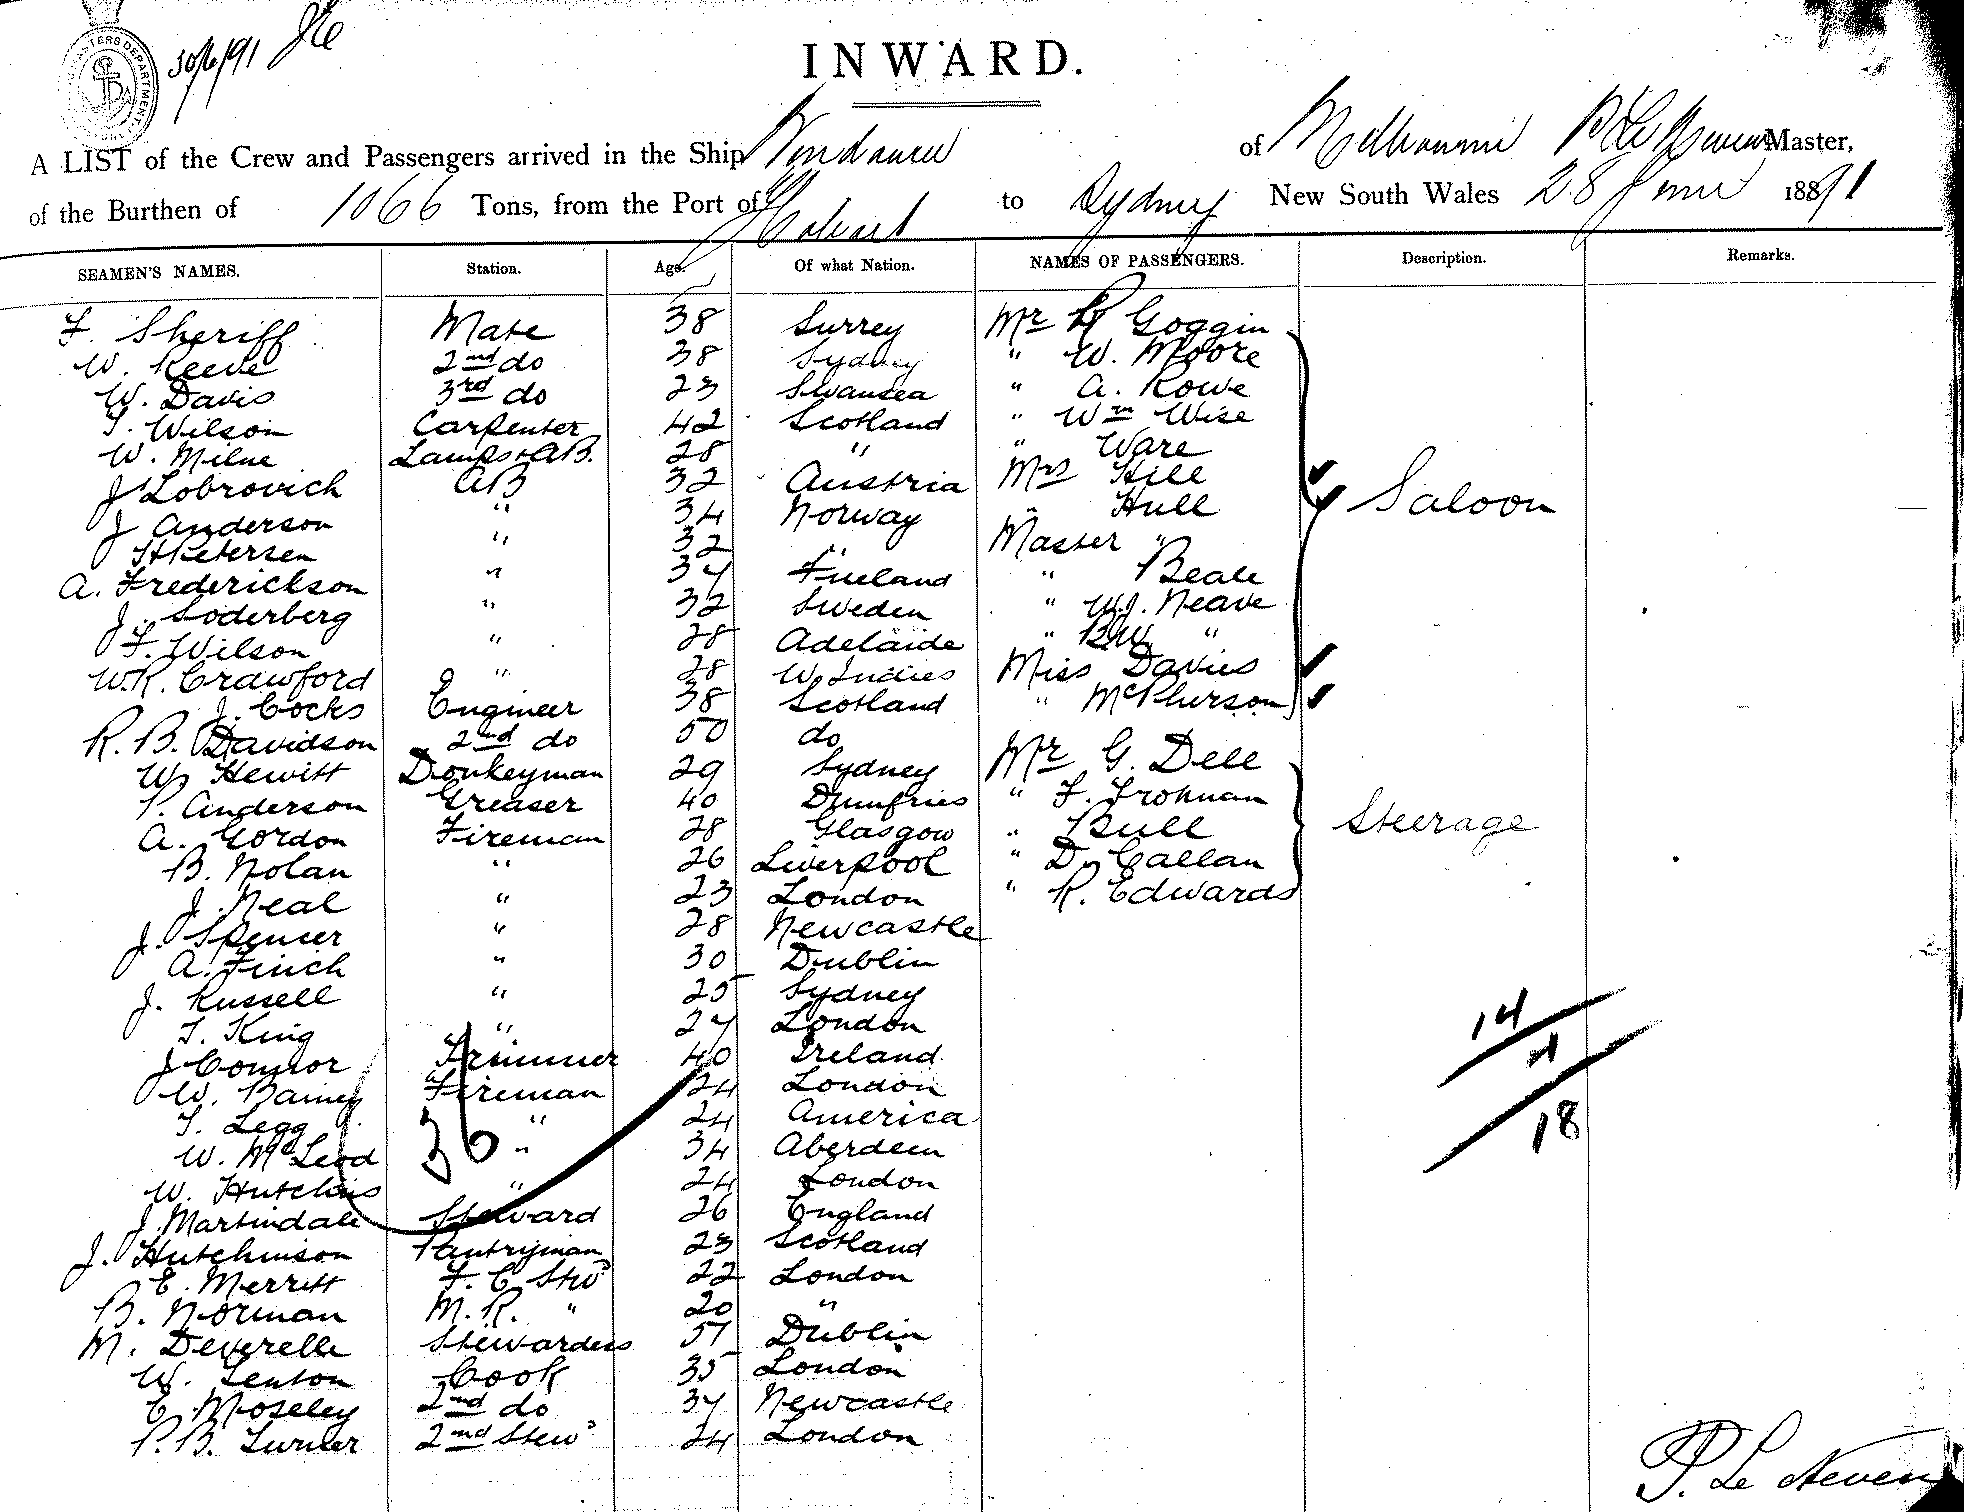 30/6/91
INWARD.
A LIST of the Crew and Passengers arrived in the Ship of Melbourne P Le Neven Master,
of the Burthen of 1066 Tons, from the Port of Hobart to Sydney New South Wales 28 June 1891
SEAMEN'S NAMES. Station. Age. Of what Nation. NAMES OF PASSENGERS. Description. Remarks.
F. Sheriff Mate 38 Surrey Mr R Goggin
W. Reeve 2nd do 38 Sydney " W. Moore
W. Davis 3rd do 23 Swansea " A. Rowe
T. Wilson Carpenter 42 Scotland " Wm Wise
W. Milne Lamps & AB. 28 " " Ware
J Lobrovich AB 32 Austria Mrs Hill
J Anderson " 34 Norway " Hull Saloon
H Petersen " 32 " Master "
A. Frederickson " 37 Finland " Beale
J. Soderberg " 32 Sweden " W.J. Neave
F. Wilson " 28 Adelaide " BW "
W.R. Crawford " 28 W Indies Miss Davies
J. Cocks Engineer 38 Scotland " McPherson
R. B. Davidson 2nd do 50 do
W Hewitt Donkeyman 29 Sydney Mr G. Dell
P. Anderson Greaser 40 Dumfries " F. Frohman
A. Gordon Fireman 28 Glasgow " Bull Steerage
B. Nolan " 26 Liverpool " D. Callan
J. Neal " 23 London " R. Edwards
J. Spencer " 28 Newcastle
A. Finch " 30 Dublin
J. Russell " 25 Sydney
T. King " 27 London
J Connor Trimmer 40 Ireland
W. Barney Fireman 24 London
T. Legg " 24 America
W. McLeod " 34 Aberdeen
W. Hutchins " 24 London
J. Martindale Steward 26 England
J. Hutchinson Pantryman 23 Scotland
E. Merritt F. C. Stew 22 London
B. Norman M. R. " 20 "
M. Deverelle Stewardess 51 Dublin
W. Lenton Cook 35 London
C Moseley 2nd do 37 Newcastle
P. B. Turner 2nd Stew 24 London
36
14
4
18
P. Le Neven